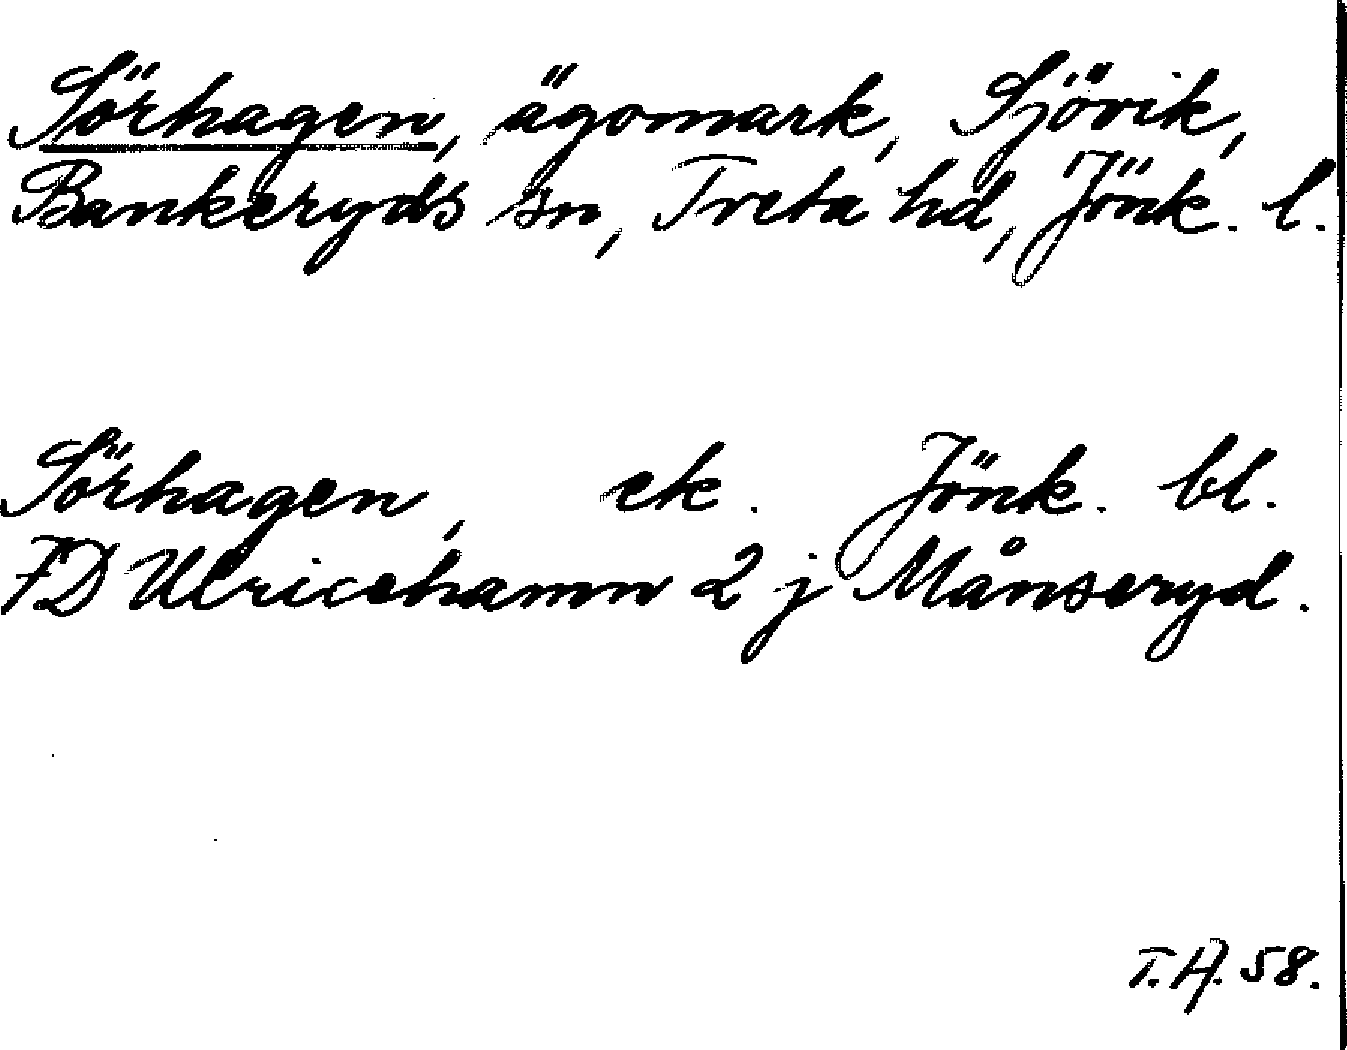 Sörhagen, ägomark, Sjövik,
Bankeryds sn, Tveta hd, Jönk. l.
Sörhagen, ek. Jönk. bl.
FD Ulricehamn 2 j Månseryd.
T.A. 58.